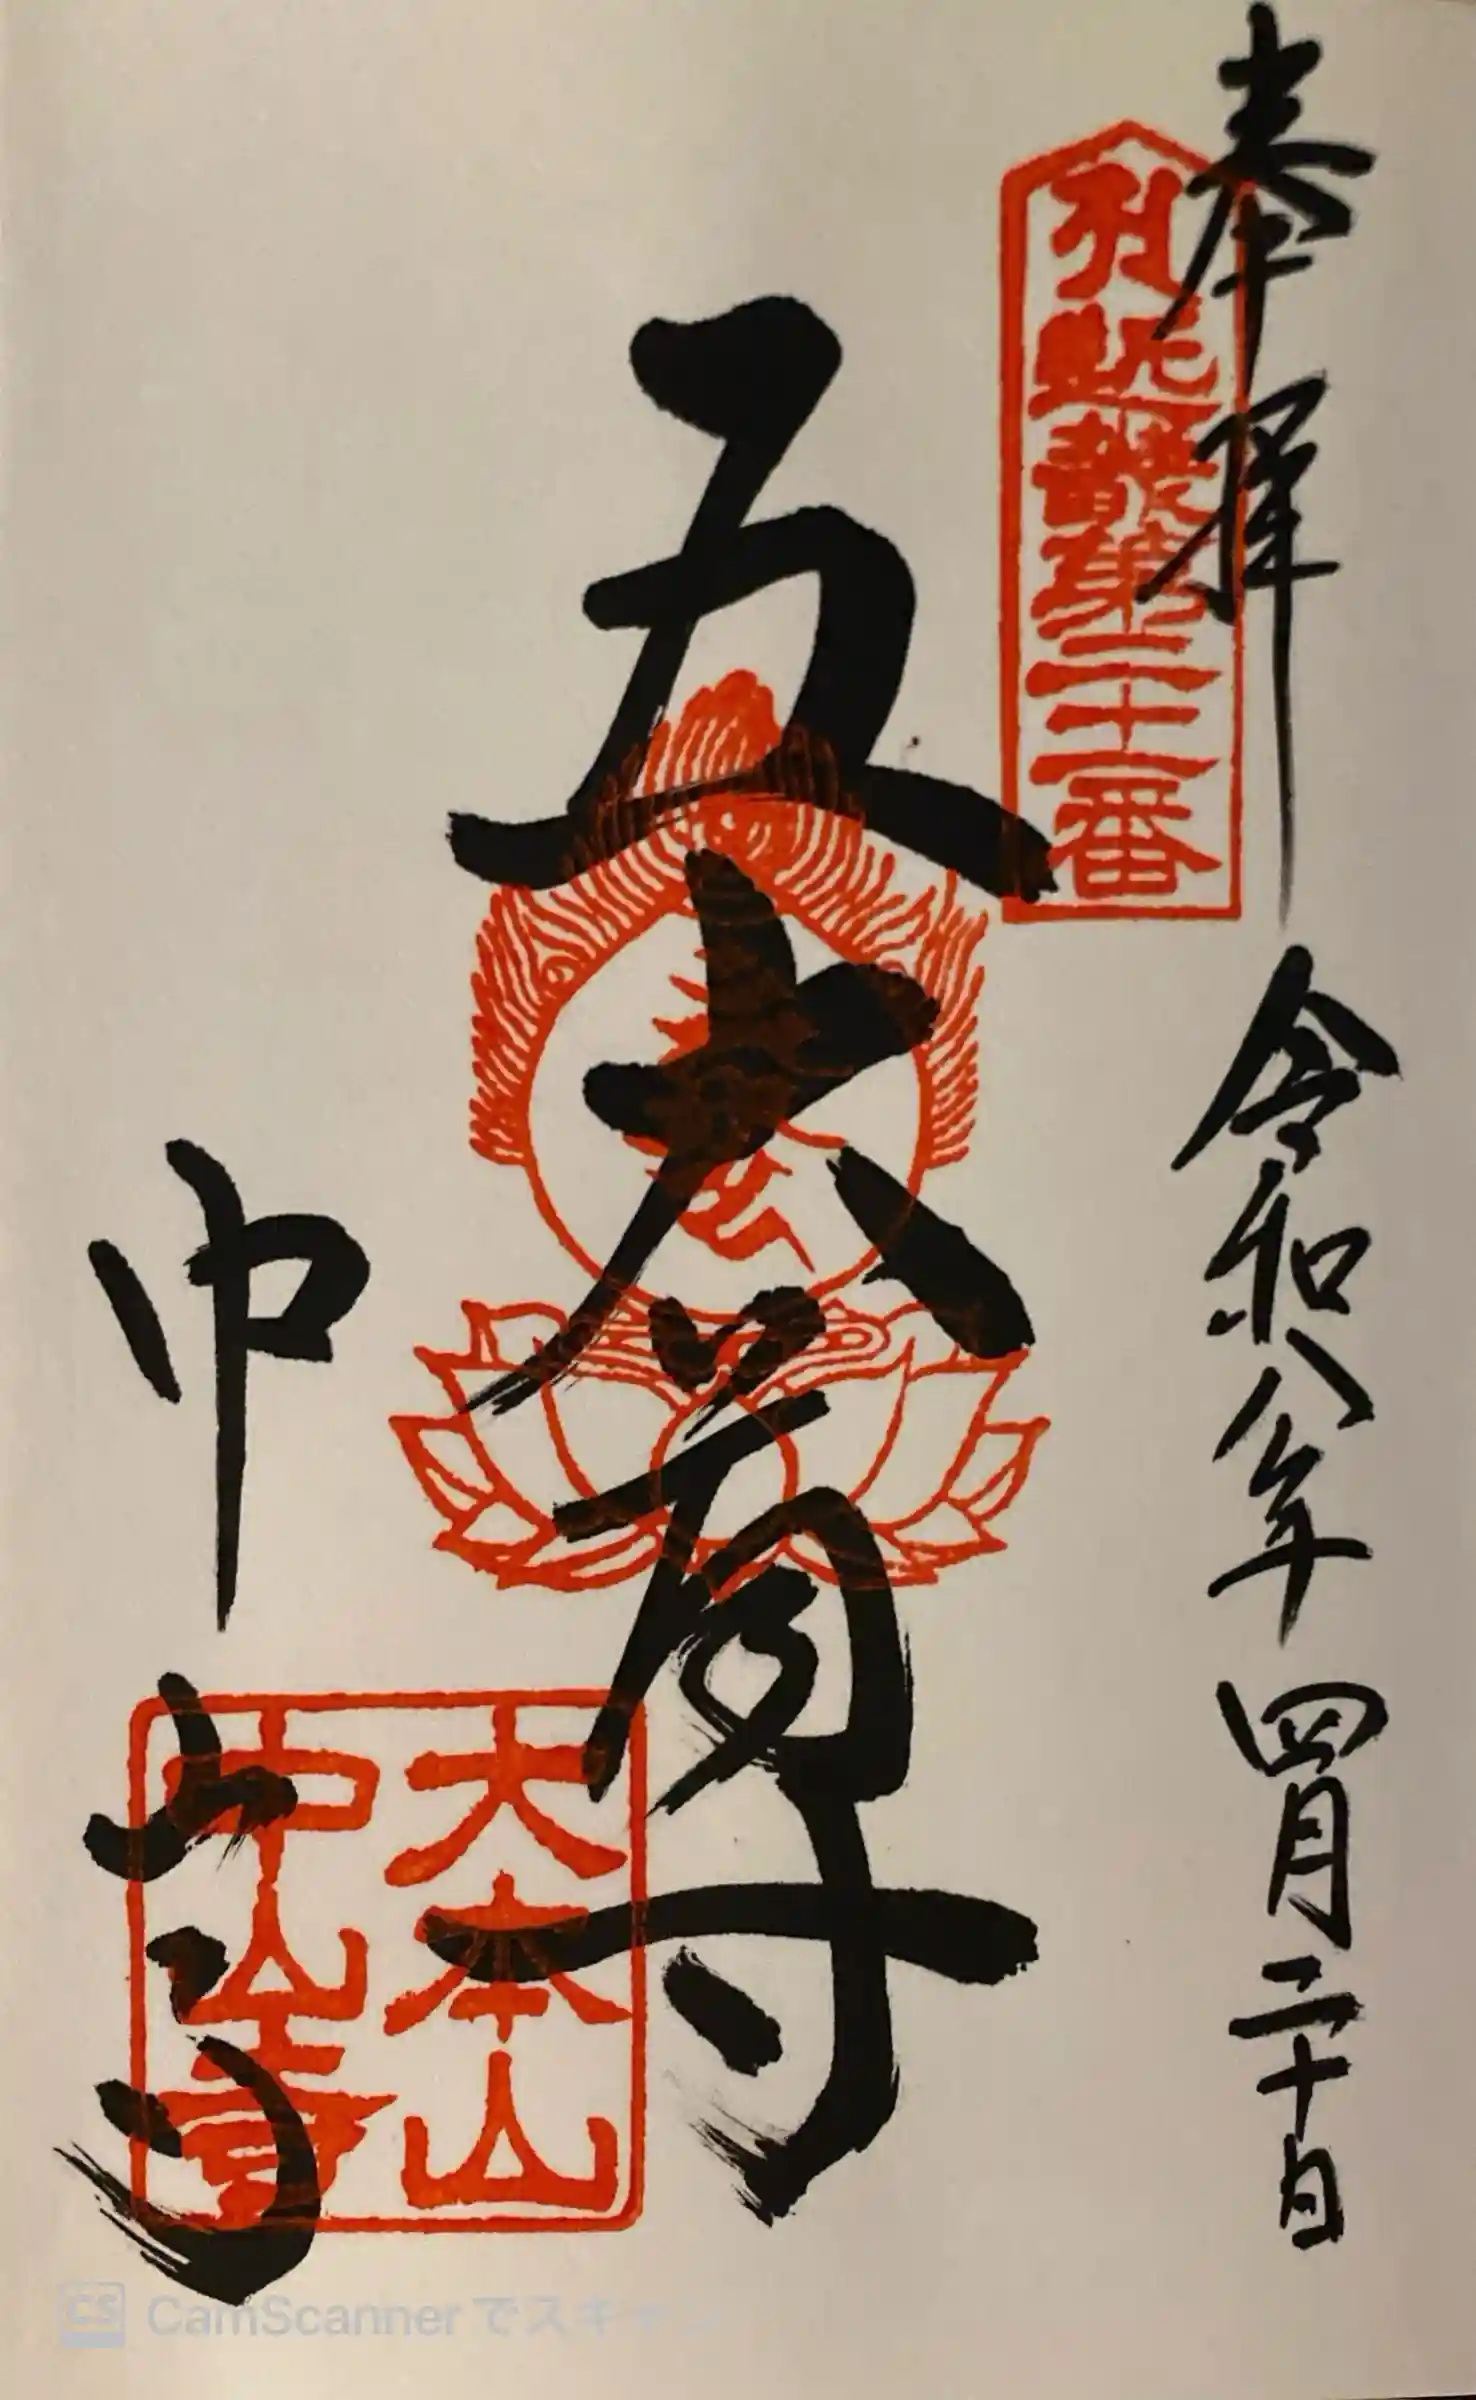 奉拝
第二十一番
令和八年四月二十日
五大尊
中山寺
大本山
中山寺
CamScannerでスキャン